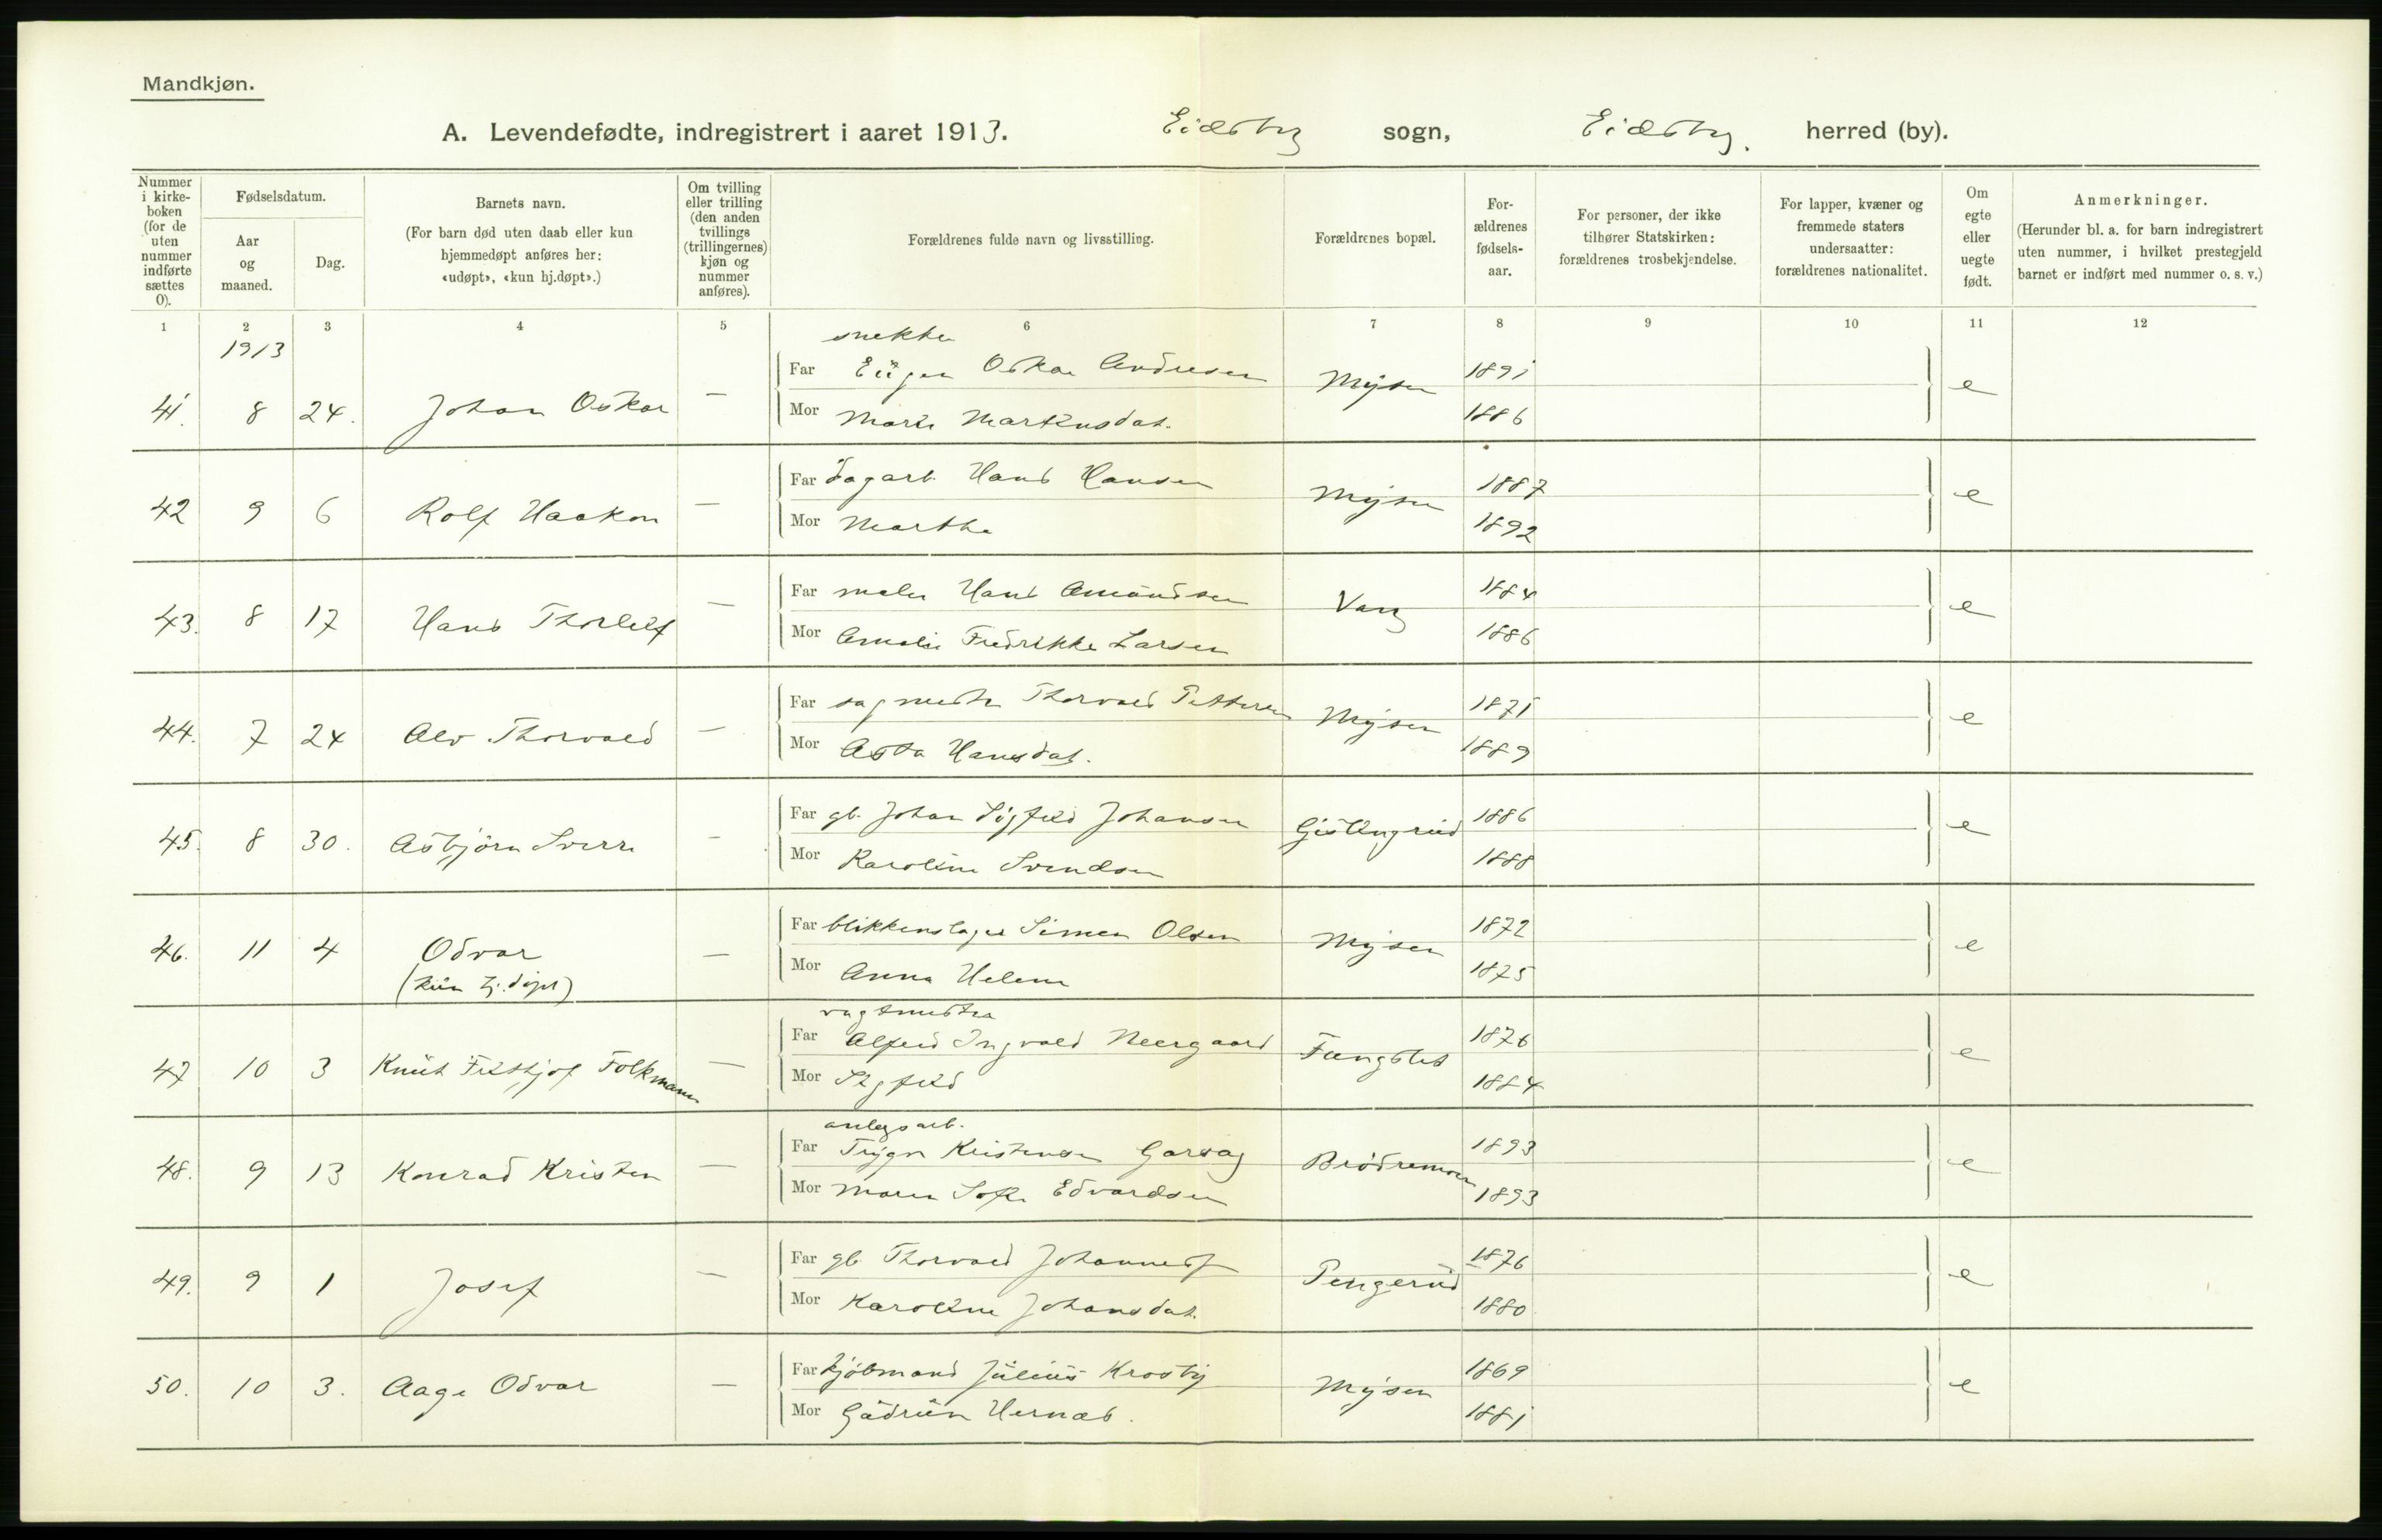 Mandkjøn.
A. Levendefødte, indregistrert i aaret 1913. Eidsberg sogn, Eidsberg. herred (by).
Nummer i kirkeboken (for de uten nummer indførte sættes 0).
Fødselsdatum.
Aar og maaned.
Dag.
Barnets navn.
(For barn død uten daab eller kun hjemmedøpt anføres her: «udøpt», «kun hj.døpt».)
Om tvilling eller trilling (den anden tvillings (trillingernes) kjøn og nummer anføres).
Forældrenes fulde navn og livsstilling.
Forældrenes bopæl.
Forældrenes fødselsaar.
For personer, der ikke tilhører Statskirken: forældrenes trosbekjendelse.
For lapper, kvæner og fremmede staters undersaatter: forældrenes nationalitet.
Om egte eller uegte født.
Anmerkninger.
(Herunder bl. a. for barn indregistrert uten nummer, i hvilket prestegjeld barnet er indført med nummer o. s. v.)
1 2 3 4 5 6 7 8 9 10 11 12
1913
snekker
Far Eugen Oskar Andresen Mysen 1891
41. 8 24. Johan Oskar — e
Mor Marie Martinsdat. 1886
Far dagarb. Hans Hansen Mysen 1887
42 9 6 Rolf Haakon — e
Mor Martha 1892
Far maler Hans Amundsen Vang 1884
43. 8 17 Hans Thorleif — e
Mor Amalie Fredrikke Larsen 1886
Far sagmester Thorvald Pettersen Mysen 1871
44. 7 24 Alv Thorvald — e
Mor Asta Hansdat. 1889
Far gb. Johan Sigfrid Johansen 1886
45. 8 30. Asbjörn Sverre — e
Mor Karoline Svendsen 1888
Far blikkenslager Simen Olsen Mysen 1872
46. 11 4 Odvar — e
(kun hj.döpt)
Mor Anna Helene 1875
vagtmester
Far Alfred Ingvald Neergaard Fungslet 1876
47 10 3 Knut Fritthjof Folkmann — e
Mor Sigfrid 1884
anlegsarb.
Far Trygve Kristensen Garsag Brödremoen 1893
48. 9 13 Konrad Kristen — e
Mor Maren Sofie Edvardsen 1893
Far gb Thorvald Johannesf Pengerud 1876
49. 9 1 Josef — e
Mor Karoline Johansdat. 1880
Far kjöbmand Julius Krosby Mysen 1869
50. 10 3. Aage Odvar — e
Mor Gudrun Hernæs. 1881